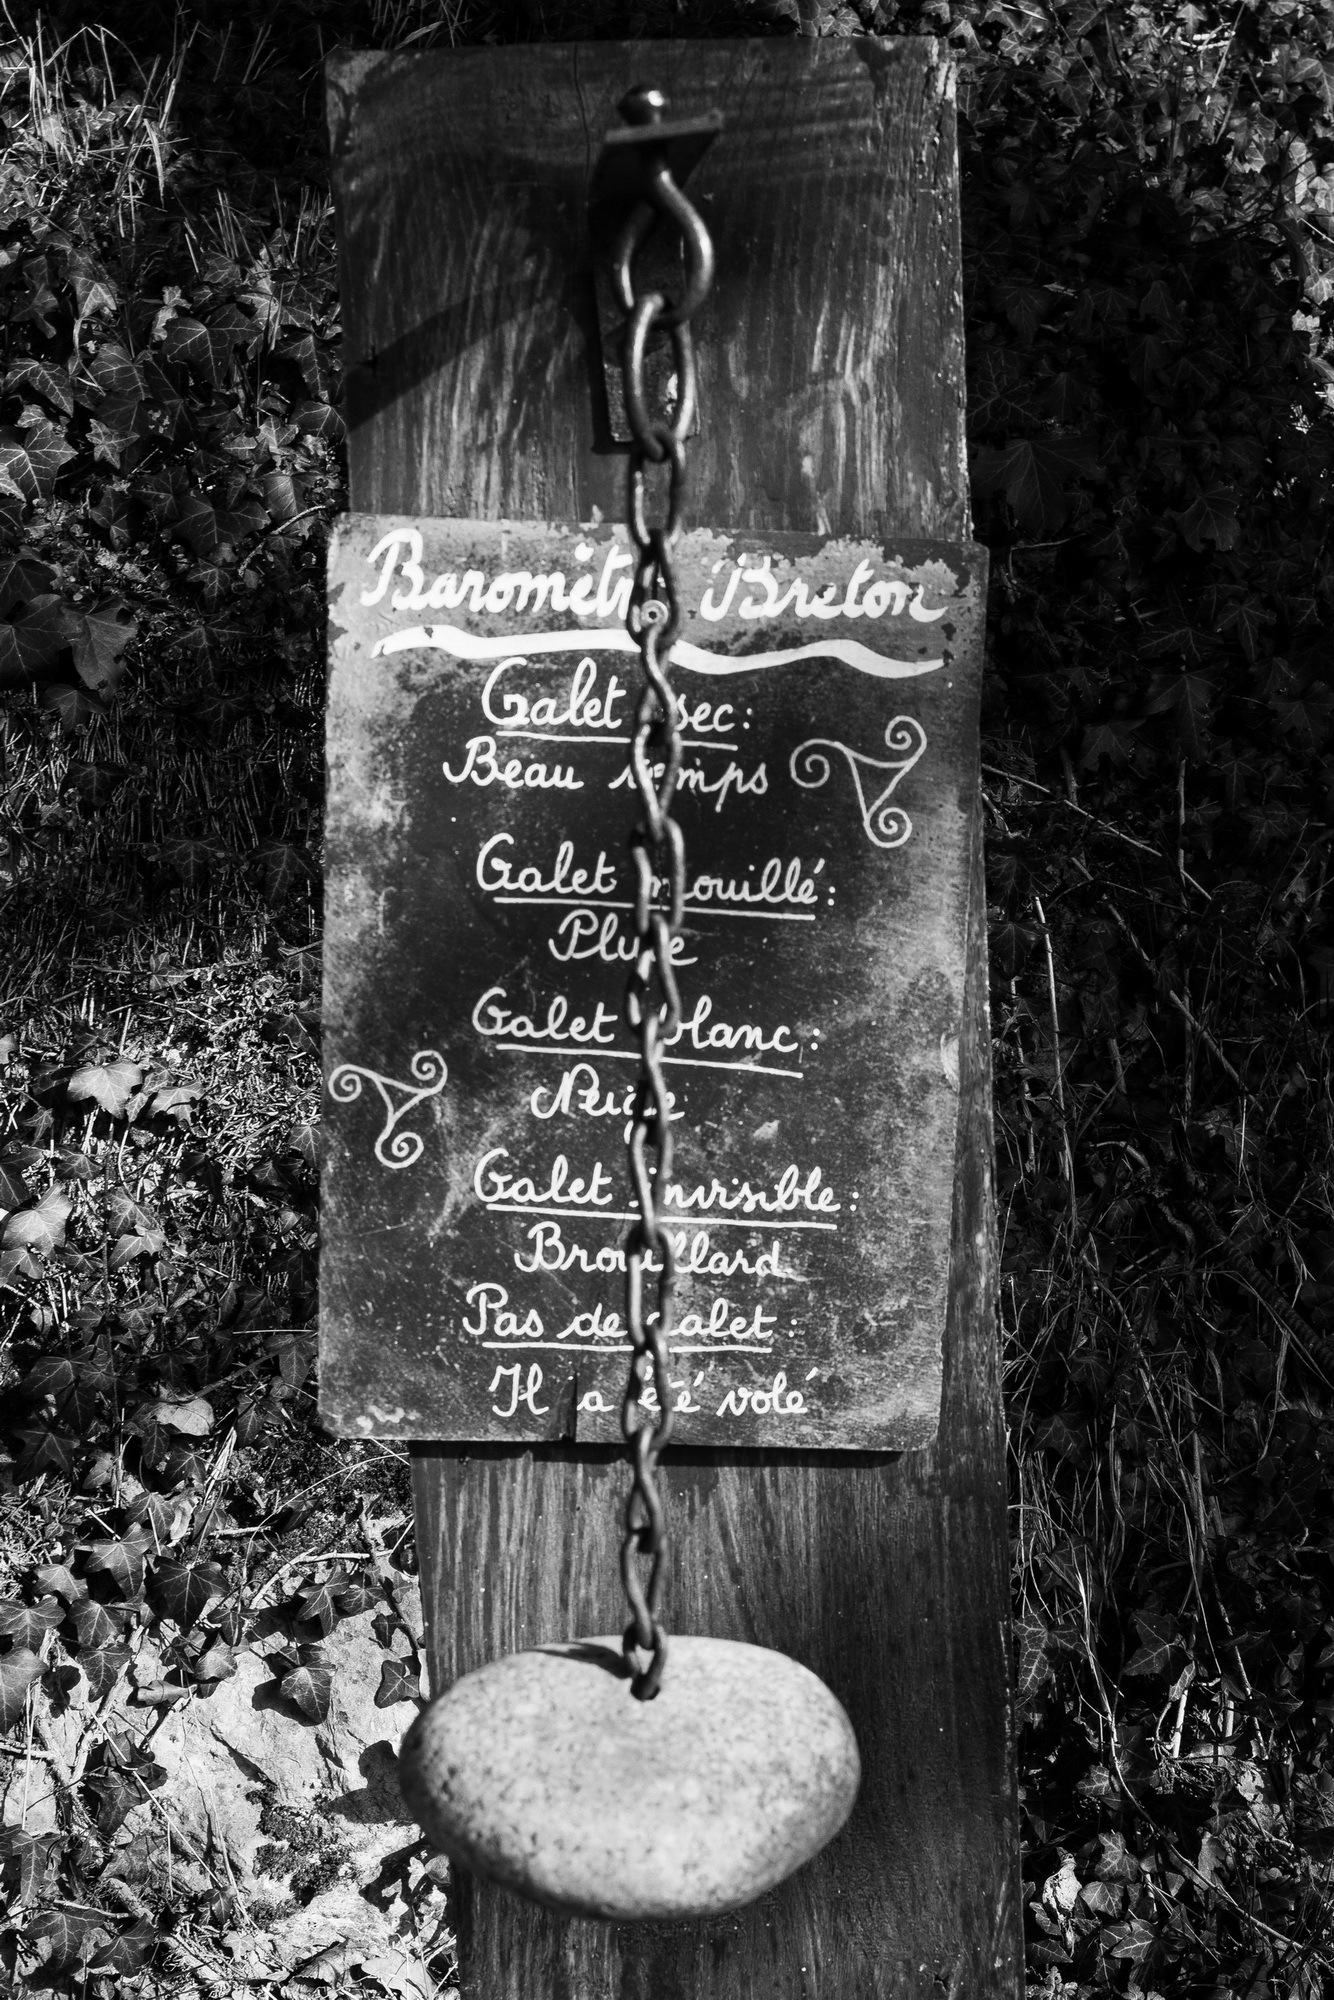 Baromètre Breton
Galet sec:
Beau temps
Galet mouillé:
Pluie
Galet blanc:
Neige
Galet invisible:
Brouillard
Pas de galet:
Il a été volé